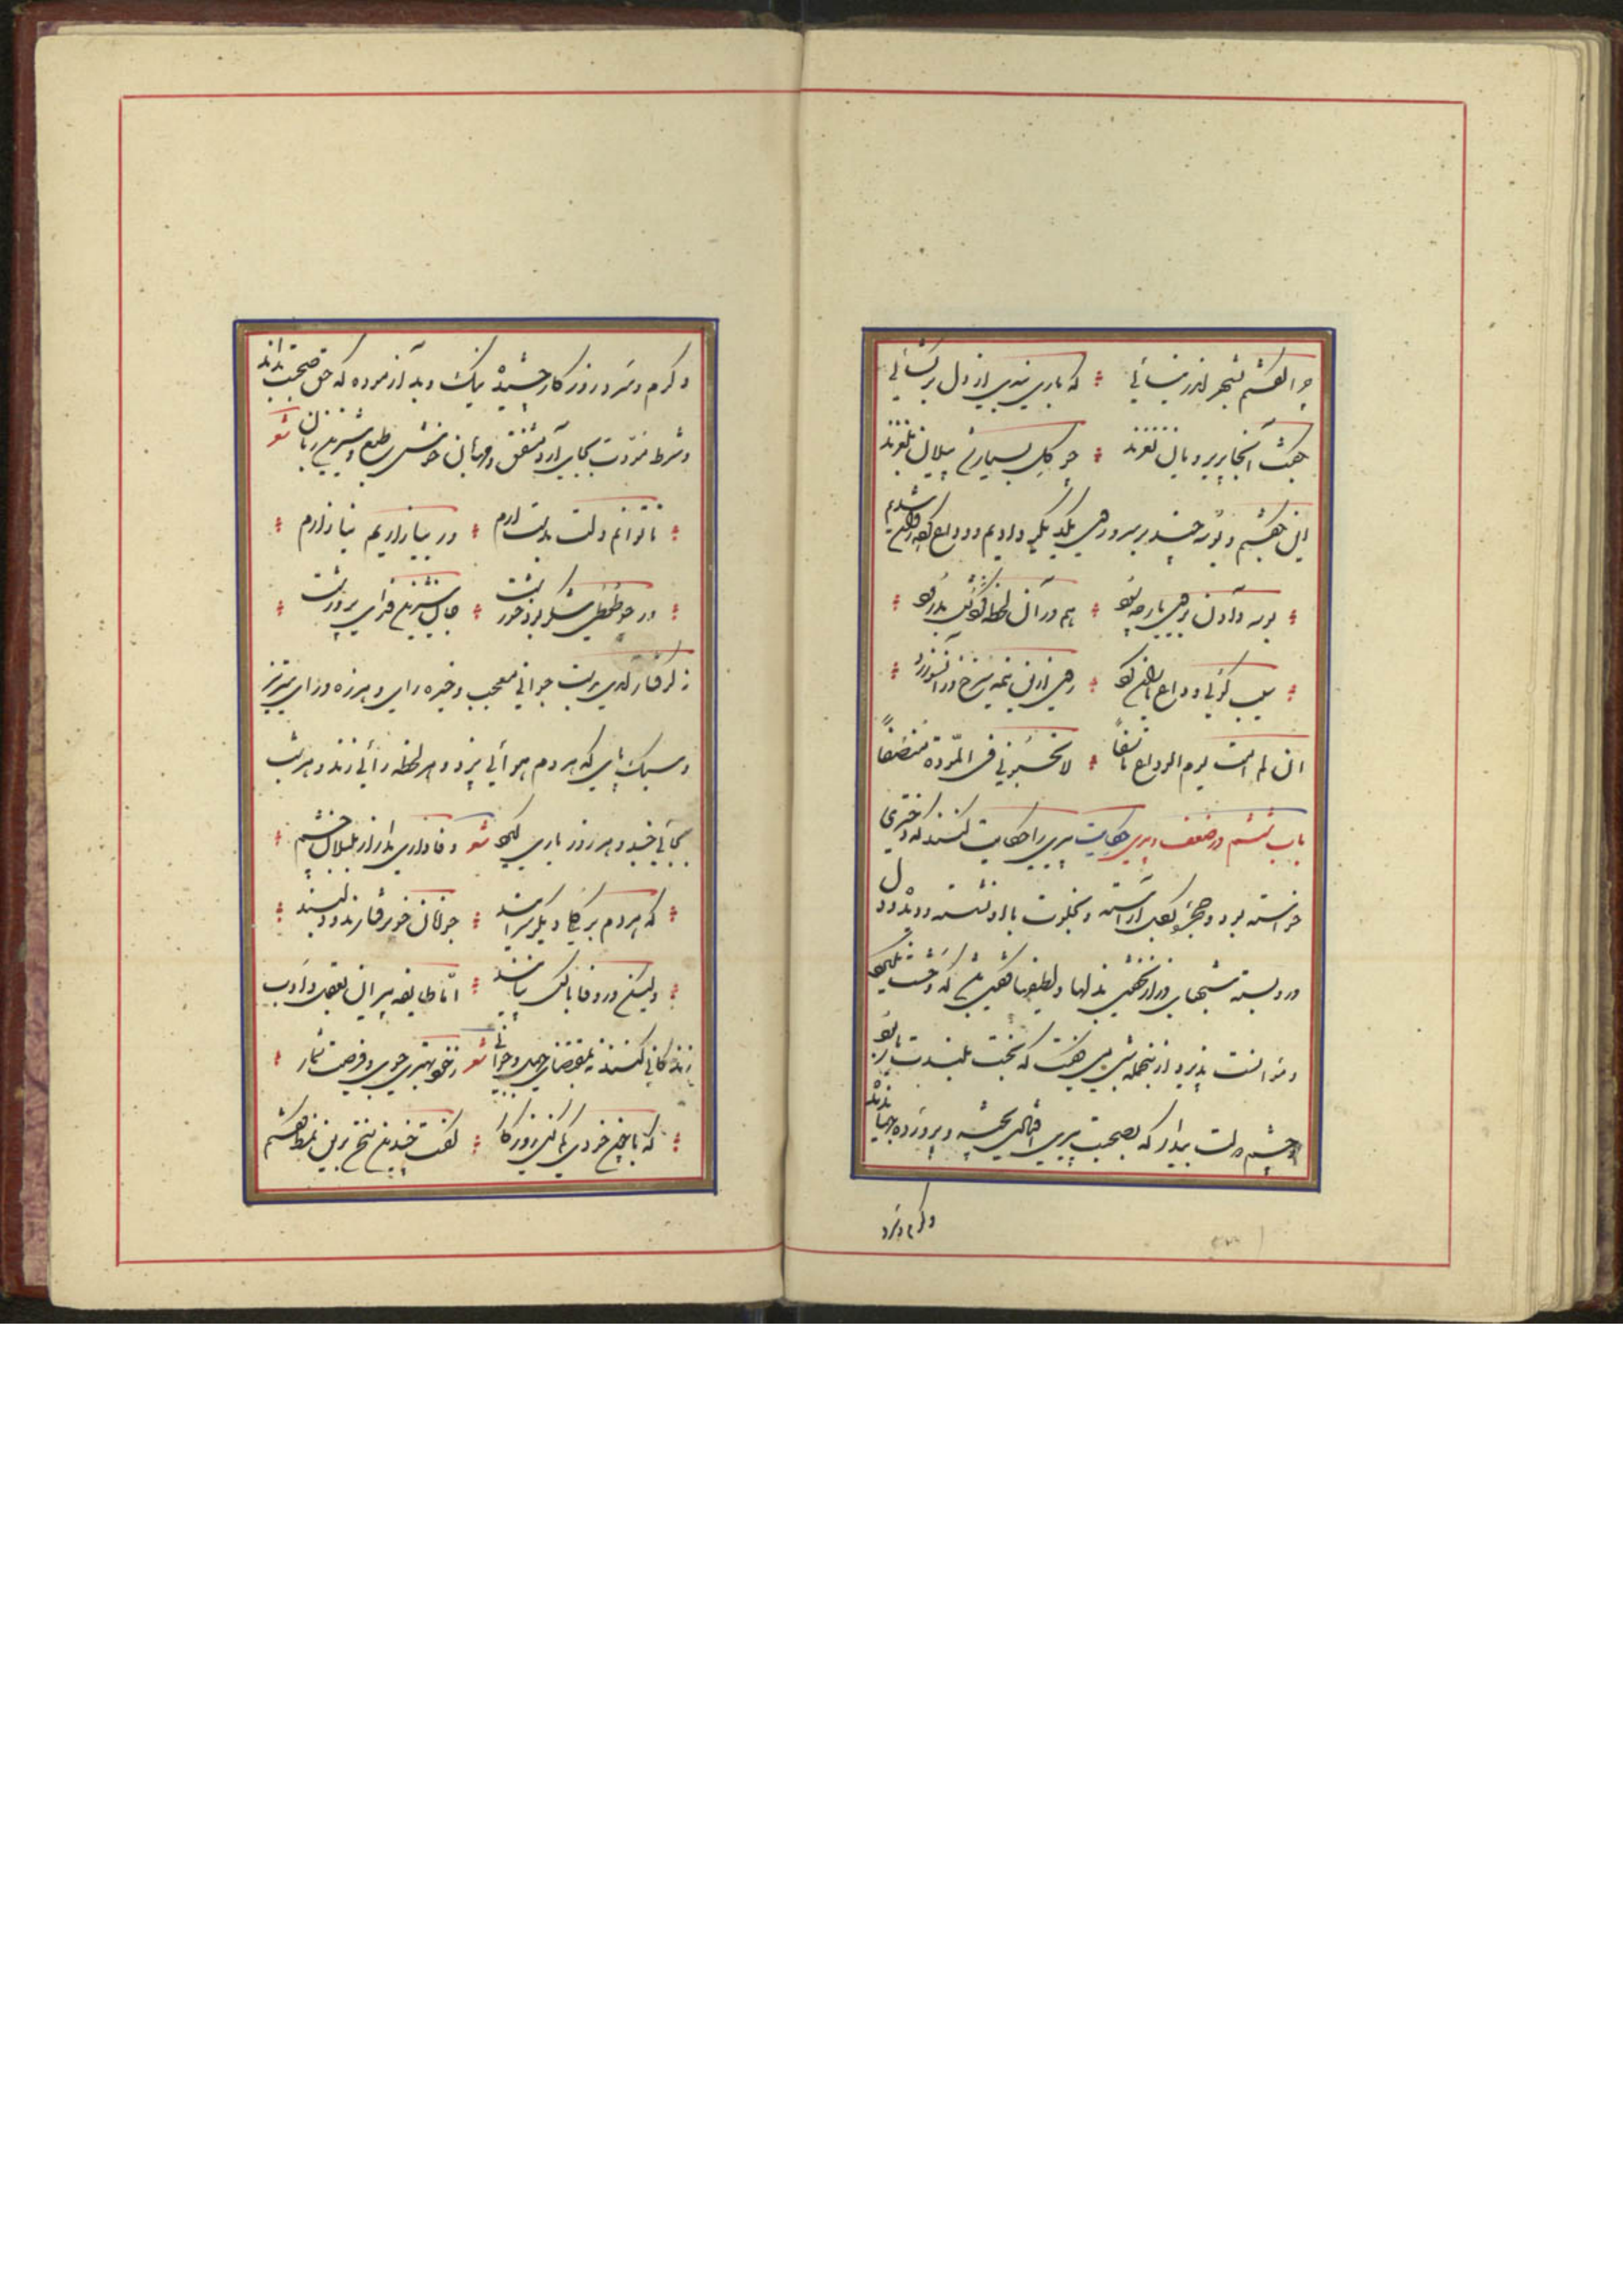 چرا گفتم بشهر اندر نیائی که باری بندی از دل برگشائی
بگفت آنجا پریرویان نغزند چو گل بسیار شد پیلان بلغزند
این بگفتم و بوسه چند بر سر و روی یکدیگر دادیم و وداع کرده روان شدیم
بوسه دادن بروی یار چه سود هم در آن لحظه کردنش بدرود
سیب گوئی وداع یاران کرد روی ازین نیمه سرخ و زانسو زرد
ان لم امت یوم الوداع تأسفاً لا تحسبونی فی المودة منصفاً
باب ششم در ضعف و پیری حکایت پیری را حکایت کنند که دختری
خواسته بود و حجره بگل آراسته و بخلوت با او نشسته و دیده و دل
در و بسته شبهای دراز نخفتی بذلها و لطیفها گفتی باشد که وحشت نگیرد
و مؤانست پذیرد از جمله شبی میگفت که بخت بلندت یار بود
و چشم دولت بیدار که بصحبت پیری افتادی پخته و پرورده جهاندیده
و گرم و سرد
و گرم و سرد روزگار چشیده نیک و بد آزموده که حق صحبت بداند
و شرط مودت بجای آرد مشفق و مهربان خوش طبع و شیرین زبان شعر
تا توانم دلت بدست آرم ور بیازاریم نیازارم
ور چو طوطی شکر بود خورشت جان شیرین فدای پرورشت
نه گرفتار آمدی بدست جوانی معجب و خیره رای و هرزه درای تیز
و سبک پای که هر دم هوائی پزد و هر لحظه رائی زند و هر شب
بجائی خسبد و هر روز یاری گیرد شعر وفاداری مدار از بلبلان چشم
که هر دم بر گلی دیگر سرایند جوانان خوب رفتارند و دلبند
ولیکن در وفا با کس نپایند اما طایفه پیران بعقل و ادب
زندگانی کنند نه بمقتضای جهل و جوانی شعر ز خود بهتری جوی و فرصت شمار
که با چون خودی گم کنی روزگار گفت چندین سخن برین نمط گفتم